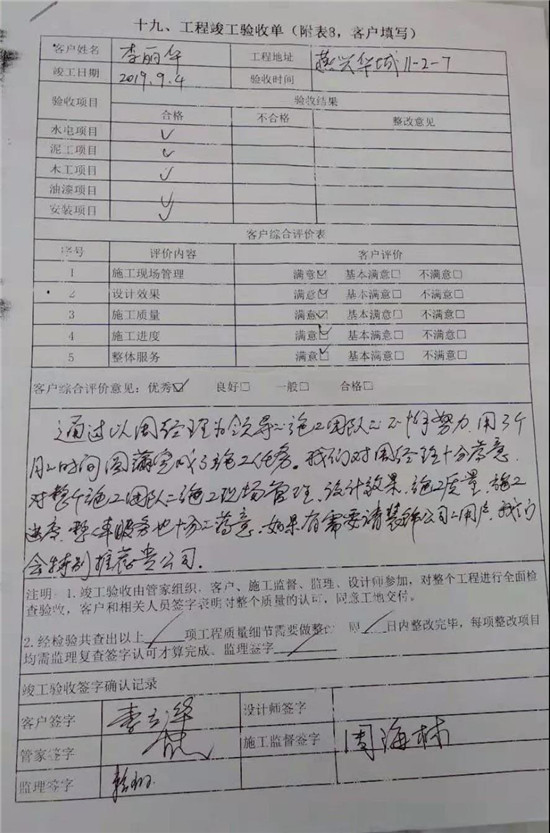 十九、工程竣工验收单（附表8，客户填写）
客户姓名 李丽华 工程地址 燕兴华城11-2-7
竣工日期 2019.9.4 验收时间
验收项目 验收结果
合格 不合格 整改意见
水电项目 ✓
泥工项目 ✓
木工项目 ✓
油漆项目 ✓
安装项目 ✓
客户综合评价表
序号 评价内容 客户评价
1 施工现场管理 满意☑ 基本满意□ 不满意□
2 设计效果 满意☑ 基本满意□ 不满意□
3 施工质量 满意☑ 基本满意□ 不满意□
4 施工进度 满意☑ 基本满意□ 不满意□
5 整体服务 满意☑ 基本满意□ 不满意□
客户综合评价意见：优秀☑ 良好□ 一般□ 合格□
通过以周经理为领导的施工团队的不懈努力，用了3个
月的时间圆满完成了施工任务。我们对周经理十分满意，
对整个施工团队的施工现场管理、设计效果、施工质量、施工
进度、整体服务也十分的满意，如果有需要请装饰公司的用户，我们
会特别推荐贵公司。
注明：1.竣工验收由管家组织，客户、施工监督、监理、设计师参加，对整个工程进行全面检
查验收，客户和相关人员签字表明对整个质量的认可，同意工地交付。
2.经检验共查出以上 项工程质量细节需要做整改 日内整改完毕，每项整改项目
均需监理复查签字认可才算完成、监理签字
竣工验收签字确认记录
客户签字 设计师签字
管家签字 施工监督签字 周海林
监理签字